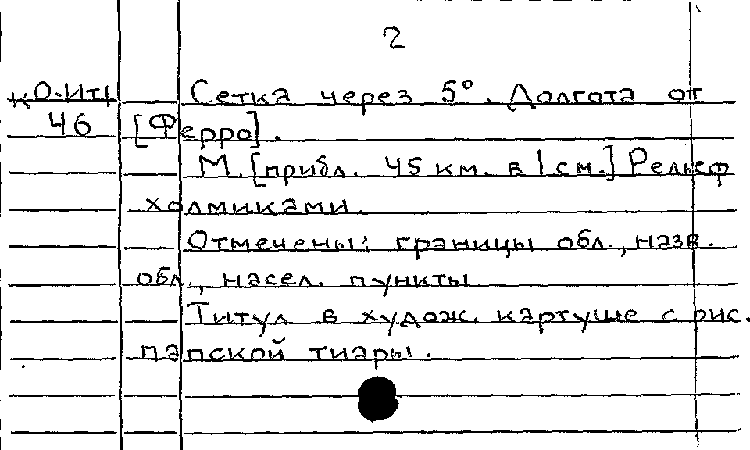 2
КО-Ит1 Сетка через 5°. Долгота от
46 [Ферро].
М. [прибл. 45 км. в 1 см.] Рельеф
холмиками.
Отмечены: границы обл., назв.
обл., насел. пункты
Титул в худож. картуше с рис.
папской тиары.